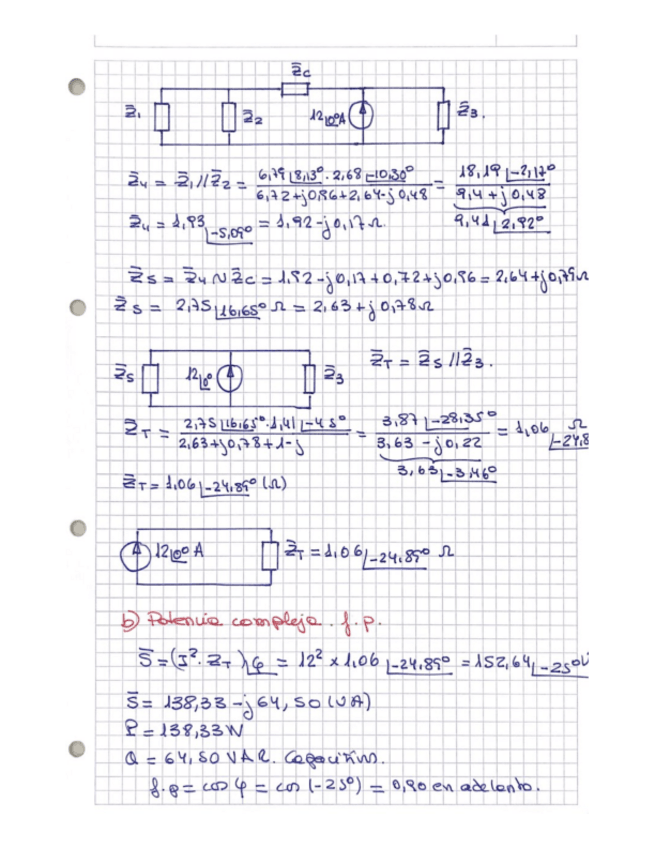 Z̄c
Z̄₁ Z̄₂ 12⌊0º A Z̄3.
Z̄4 = Z̄1//Z̄2 = 6,79⌊8,13º · 2,68⌊-10,30º / 6,72+j0,96+2,64-j0,48 = 18,19⌊-2,17º / 9,4+j0,48
Z̄4 = 1,93⌊-5,09º = 1,92-j0,17Ω. 9,41⌊2,92º
Z̄5 = Z̄4 N Z̄c = 1,92-j0,17+0,72+j0,96 = 2,64+j0,79Ω
Z̄5 = 2,75⌊16,65º Ω = 2,63+j0,78Ω
Z̄5 12⌊0º Z̄3 Z̄T = Z̄5//Z̄3.
Z̄T = 2,75⌊16,65º · 1,41⌊-45º / 2,63+j0,78+1-j = 3,87⌊-28,35º / 3,63-j0,22 = 1,06⌊-24,8 Ω
3,63⌊-3,46º
Z̄T = 1,06⌊-24,89º (Ω)
12⌊0º A Z̄T = 1,06⌊-24,89º Ω
b) Potencia compleja. f.p.
S̄ = (I²·ZT)⌊φ = 12² × 1,06⌊-24,89º = 152,64⌊-25º
S̄ = 138,33-j64,50 (VA)
P = 138,33W
Q = 64,50 VAR. Capacitivo.
f.p = cos φ = cos (-25º) = 0,90 en adelanto.